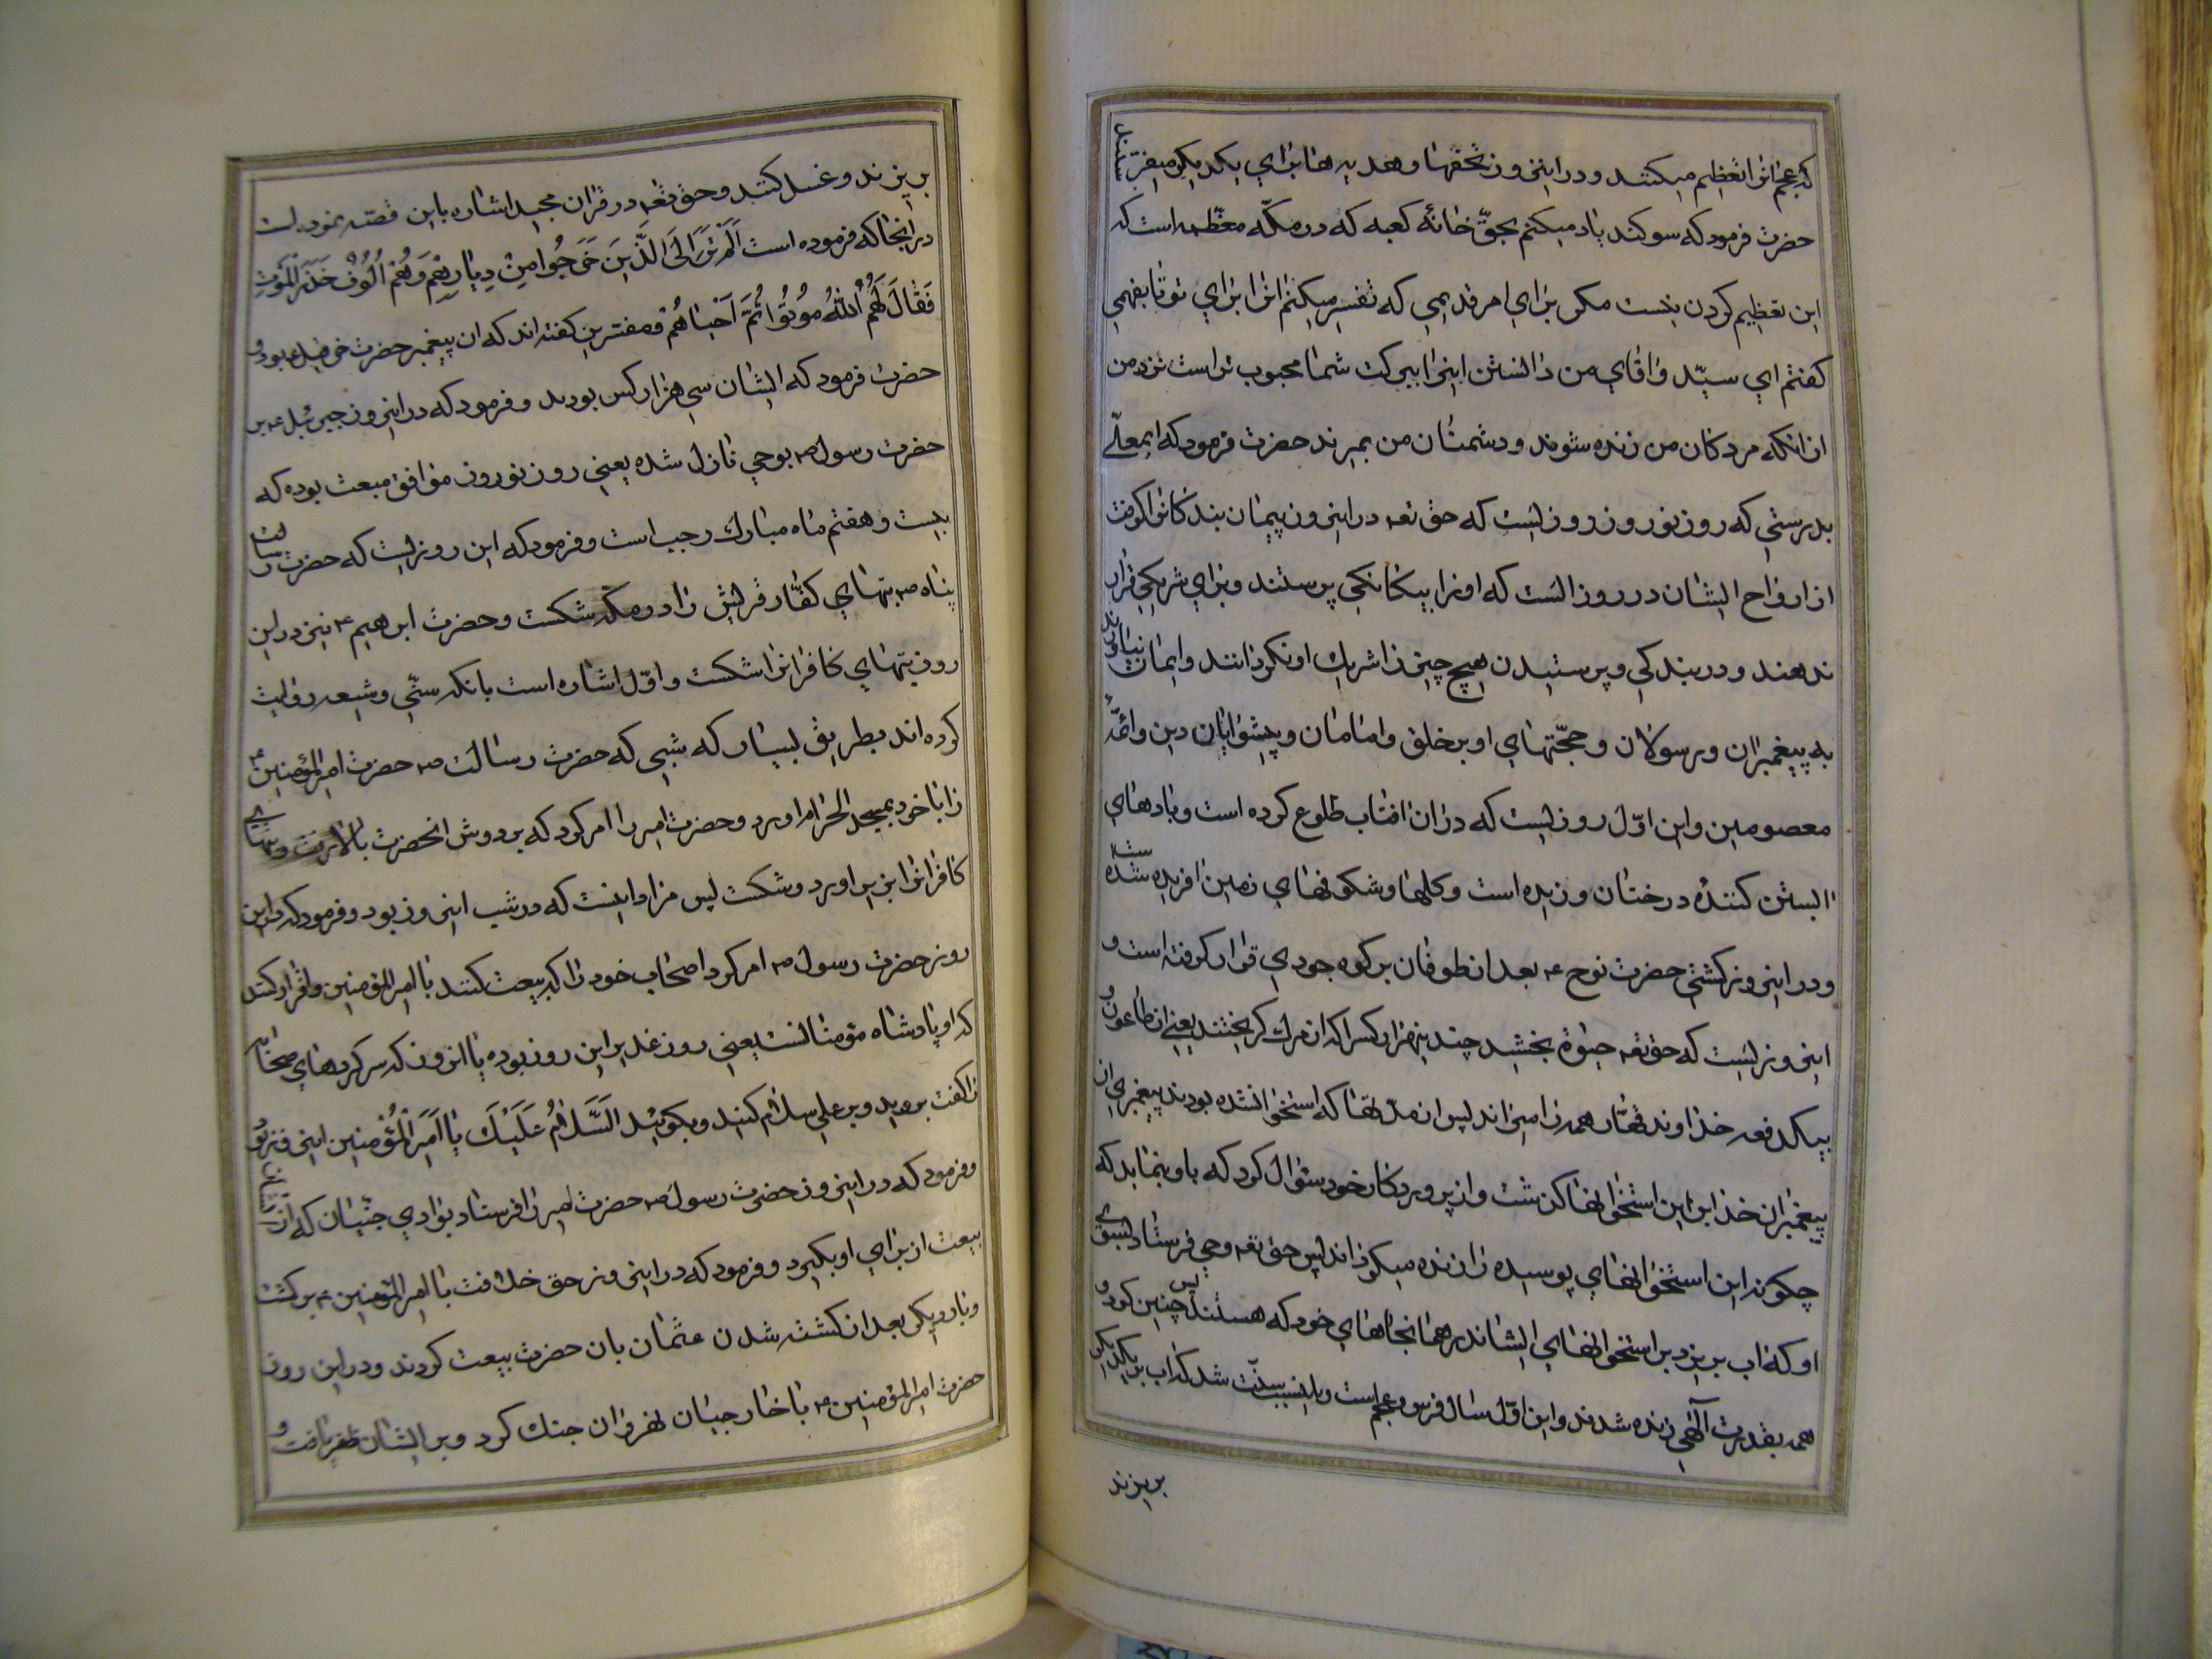 که عجم انرا تعظیم میکنند و در این روز تحفها و هدیه ها برای یکدیکر میفرستند
حضرت فرمود که سوکند یاد میکنم بحقّ خانهٔ کعبه که در مکّه معظّمه است که
این تعظیم کردن نیست مکر برای امر قدیمی که تفسیر میکنم انرا برای تو تا بفهمی
کفتم ای سیّد و اقای من دانستن این از برکت شما محبوب تر است نزد من
از انکه مردکان من زنده شوند و دشمنان من بمیرند حضرت فرمود که ایمعلّی
بدرستی که روز نوروز روزیست که حق تعه در این روز پیمان بندکانرا کرفت
از ارواح ایشان در روز الست که او را بیکانکی پرستند و برای او شریکی قرار
ندهند و در بندکی و پرستیدن هیچ چیز را شریک او نکردانند و ایمان بیاورند
به پیغمبران و رسولان و حجّتهای او بر خلق و امامان و پیشوایان دین و ائمّه
معصومین و این اوّل روزیست که در ان افتاب طلوع کرده است و بادهای
ابستن کنندهٔ درختان وزیده است و کلها و شکوفهای زمین افریده شده
و در این روز کشتی حضرت نوح ع بعد از طوفان بر کوه جودی قرار کرفته است و
این روزیست که حق تعه حیوة بخشید چندین هزار کس را که از مرک کریختند یعنی از طاعون و
بیکدفعه خداوند قهّار همه را میراند پس از مدّتها که استخوان شده بودند پیغمبری از
پیغمبران خدا بر این استخوانها کذشت و از پروردکار خود سؤال کرد که باو بنماید که
چکونه این استخوانهای پوسیده را زنده میکرداند پس حق تعه وحی فرستاد بسوی
او که اب بریزد بر استخوانهای ایشان در همانجاهای خود که هستند پس چنین کرد و
همه بقدرت آلهی زنده شدند و این اوّل سال فرس و عجم است و باینسبب سنّت شد که اب بر یکدیکر
بریزند
بریزند و غسل کنند و حق تعه در قران مجید اشاره باین قصّه نموده است
در انجا که فرموده است اَلَمْ تَرَ اِلَی الَّذینَ خَرَجُوا مِنْ دِیارِهِمْ وَهُمْ اُلُوفٌ حَذَرَ الْمَوْتِ
فَقالَ لَهُمُ اللّهُ مُوتُوا ثُمَّ اَحْیاهُمْ و مفسّرین کفته اند که ان پیغمبر حضرت حزقیل ع بود و
حضرت فرمود که ایشان سی هزار کس بودند و فرمود که در این روز جبرئیل ع بر
حضرت رسول ص بوحی نازل شده یعنی روز نوروز موافق مبعث بوده که
بیست و هفتم ماه مبارک رجب است و فرمود که این روزیست که حضرت رسالت
پناه ص بتهای کفّار قریش را در مکّه شکست و حضرت ابرهیم ع نیز در این
روز بتهای کافرانرا شکست و اوّل اشاره است بانکه سنّی و شیعه روایت
کرده اند بطریق بسیار که شبی که حضرت رسالت ص حضرت امیرالمؤمنین ع
را با خود بمسجد الحرام اورد و حضرت امیر را امر کرد که بر دوش انحضرت بالا رفت و بتهای
کافرانرا بزیر اورد و شکست پس مراد اینست که در شب این روز بود و فرمود که در این
روز حضرت رسول ص امر کرد اصحاب خود را که بیعت کنند با امیرالمؤمنین و اقرار کنند
که او پادشاه مؤمنانست یعنی روز غدیر این روز بوده یا انروز که سرکردهای صحابه
را کفت بروید و بر علی سلام کنید و بکوئید اَلسَّلامُ عَلَیْکَ یا اَمیرَ الْمُؤْمنین این روز بود
و فرمود که در این روز حضرت رسول ص حضرت امیر را فرستاد بوادی جنّیان که از ایشان
بیعت از برای او بکیرد و فرمود که در این روز حق خلافت با امیرالمؤمنین ع برکشت
و بار دیکر بعد از کشته شدن عثمان بان حضرت بیعت کردند و در این روز
حضرت امیرالمؤمنین ع با خارجیان نهروان جنک کرد و بر ایشان ظفر یافت و